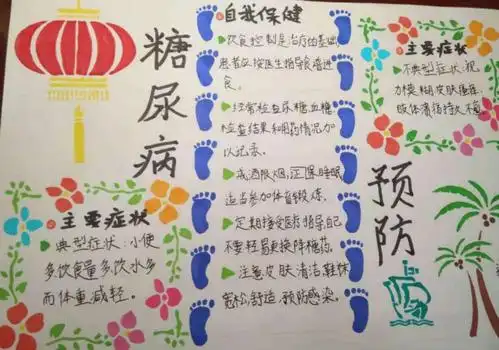 糖尿病
主要症状
典型症状:小便
多饮食量多,饮水多
而体重减轻。
自我保健
饮食控制是治疗的基础,
患者应按医生指导合理进
食。
经常检查尿糖血糖,
检查结果和用药情况加
以记录。
戒酒限烟,正常睡眠
适当参加体育锻炼。
定期接受医疗指导,自己
不要轻易更换降糖药。
注意皮肤清洁,鞋休
宽松,舒适,预防感染。
主要症状
不典型症状:视
力模糊,皮肤瘙痒,
肢体溃疡持久不愈。
预防